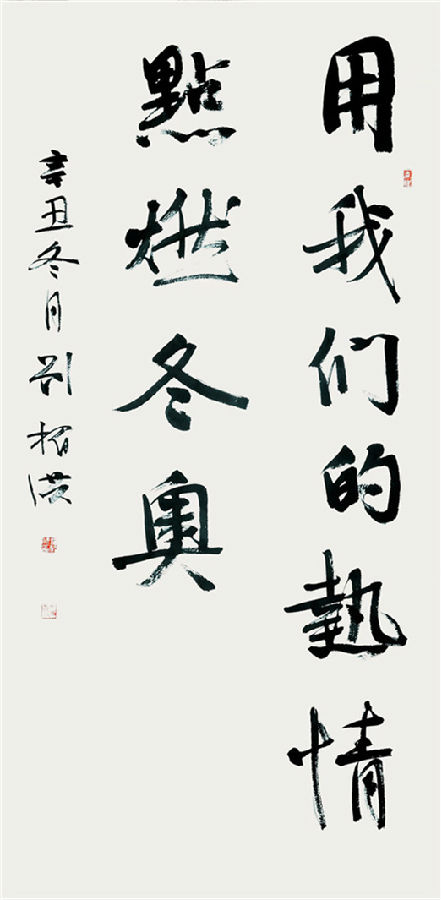 用我们的熱情
點燃冬奥
辛丑冬月劉